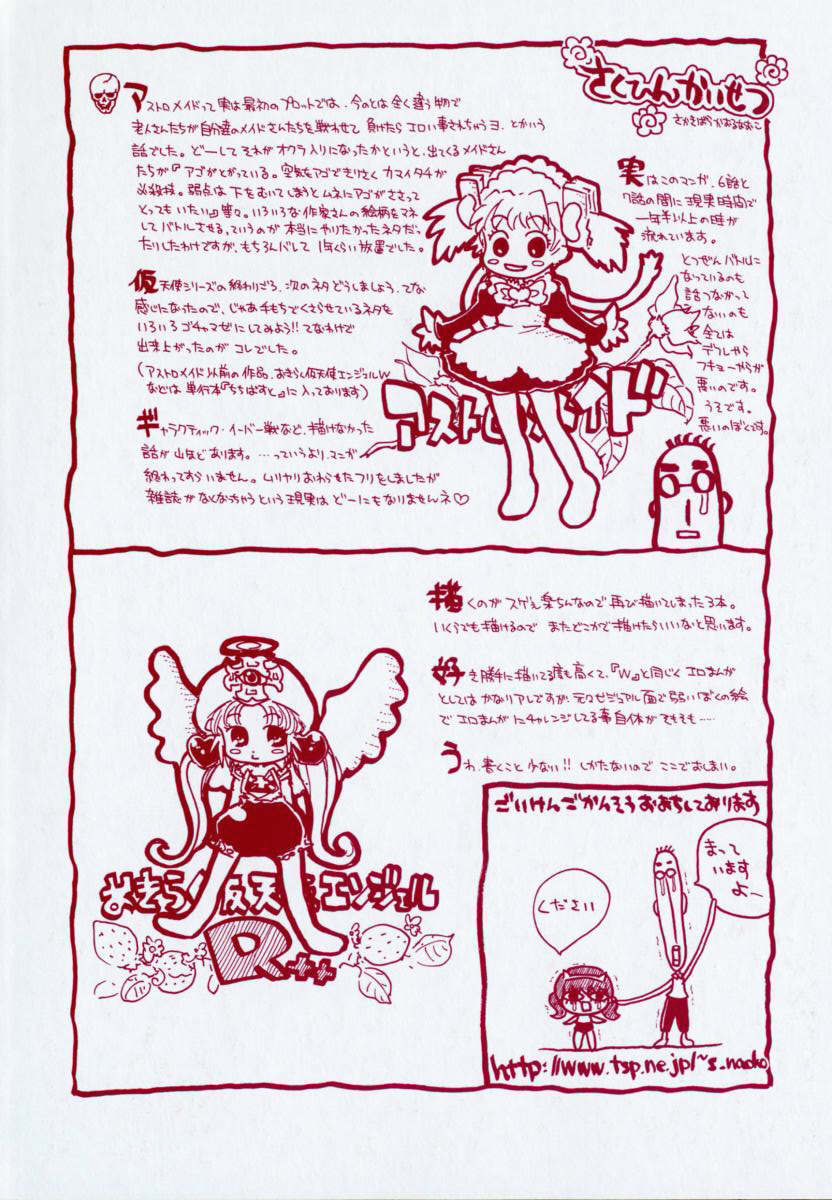 さくひんかいせつ
アストロメイドって実は最初のプロットでは、今のとは全く違う物で
老人さんたちが自分達のメイドさんたちを戦わせて 負けたらエロい事されちゃうヨ、とかいう
話でした。どーしてそれがオクラ入りになったかというと、出てくるメイドさん
たちが『アゴがとがっている。空気をアゴできりさく カマイタチが
必殺技。弱点は下をむいてしまうと ムネにアゴがささって
とってもいたい』等々。いろいろな作家さんの絵柄をマネ
してバトルさせる、っていうのが本当にやりたかったネタだっ
たりしたわけですが、もちろんバレして 1年くらい放置でした。
仮天使シリーズの終わりごろ、次のネタどうしましょう、てな
感じになったので、じゃあ手もちでくさらせているネタを
いろいろゴチャマゼにしてみよう!! てなわけで
出来上がったのが コレでした。
(アストロメイド以前の作品、あきらし仮天使エンジェルW
などは 単行本『ちちばすと』に入っております)
ギャラクティック・イーバー戦など、描けなかった
話が山ほどあります。…っていうよりマンガ
終わってすらいません。ムリヤリおわらせたフリをしましたが
雑誌がなくなっちゃうという現実は どーにもなりませんネ♡
実はこのマンガ、6話と
7話の間に現実時間で
一年半以上の時が
流れています。
とつぜんバトルに
なっているのも
話つながって
ないのも
全ては
デフレやら
フキョーやらが
悪いのです。
うそです。
悪いのぼくです。
アストロメイド
描くのが スゲぇ楽ちんなので 再び描いてしまった3本。
いくらでも描けるので またどこかで描けたらいいなと思います。
好き勝手に描いてる度も高くて、『W』と同じく エロまんが
としては かなりアレですが、元々ビジュアル面で弱いぼくの絵
で エロまんがにチャレンジしてる事自体がそもそも……
うわ、書くこと少ない!! しかたないので ここでおしまい。
エンジェル
R++
ごいけんごかんそうおまちしております
まって
います
よ〜
ください
http://www.tsp.ne.jp/~s_naoko